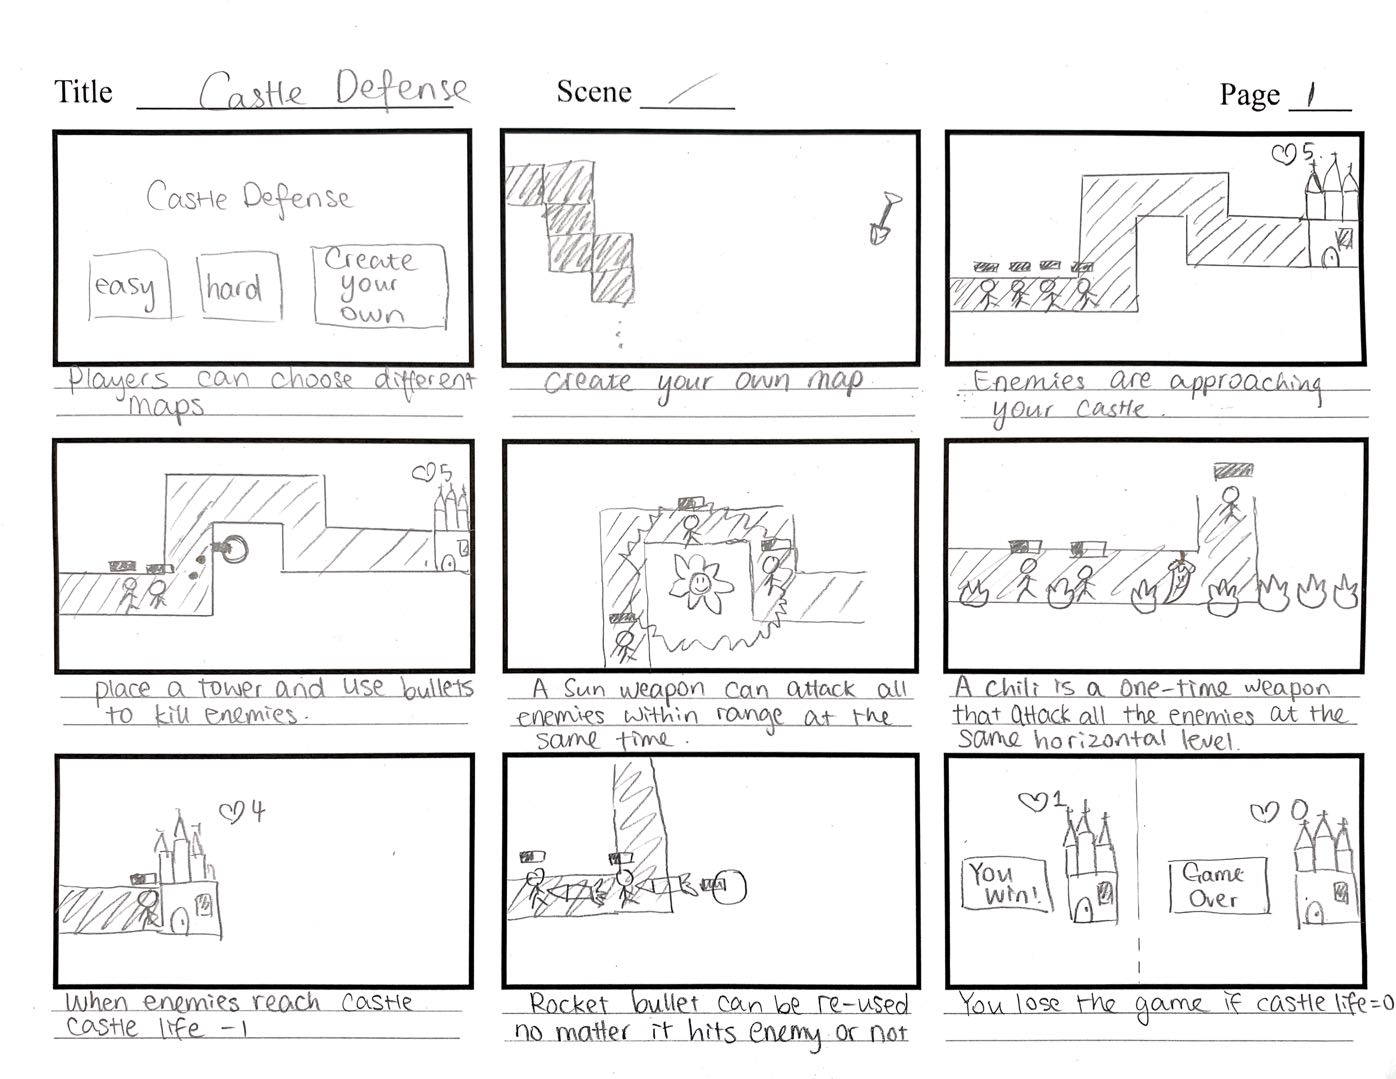 Title Castle Defense
Scene /
Page 1
Castle Defense
easy
hard
Create
your
own
Players can choose different
maps
Create your own map
♡5
Enemies are approaching
your castle.
♡5
place a tower and use bullets
to kill enemies.
A sun weapon can attack all
enemies within range at the
same time.
A chili is a one-time weapon
that attack all the enemies at the
same horizontal level.
♡4
When enemies reach castle
castle life -1
Rocket bullet can be re-used
no matter it hits enemy or not
♡1
You
Win!
♡0
Game
Over
You lose the game if castle life=0